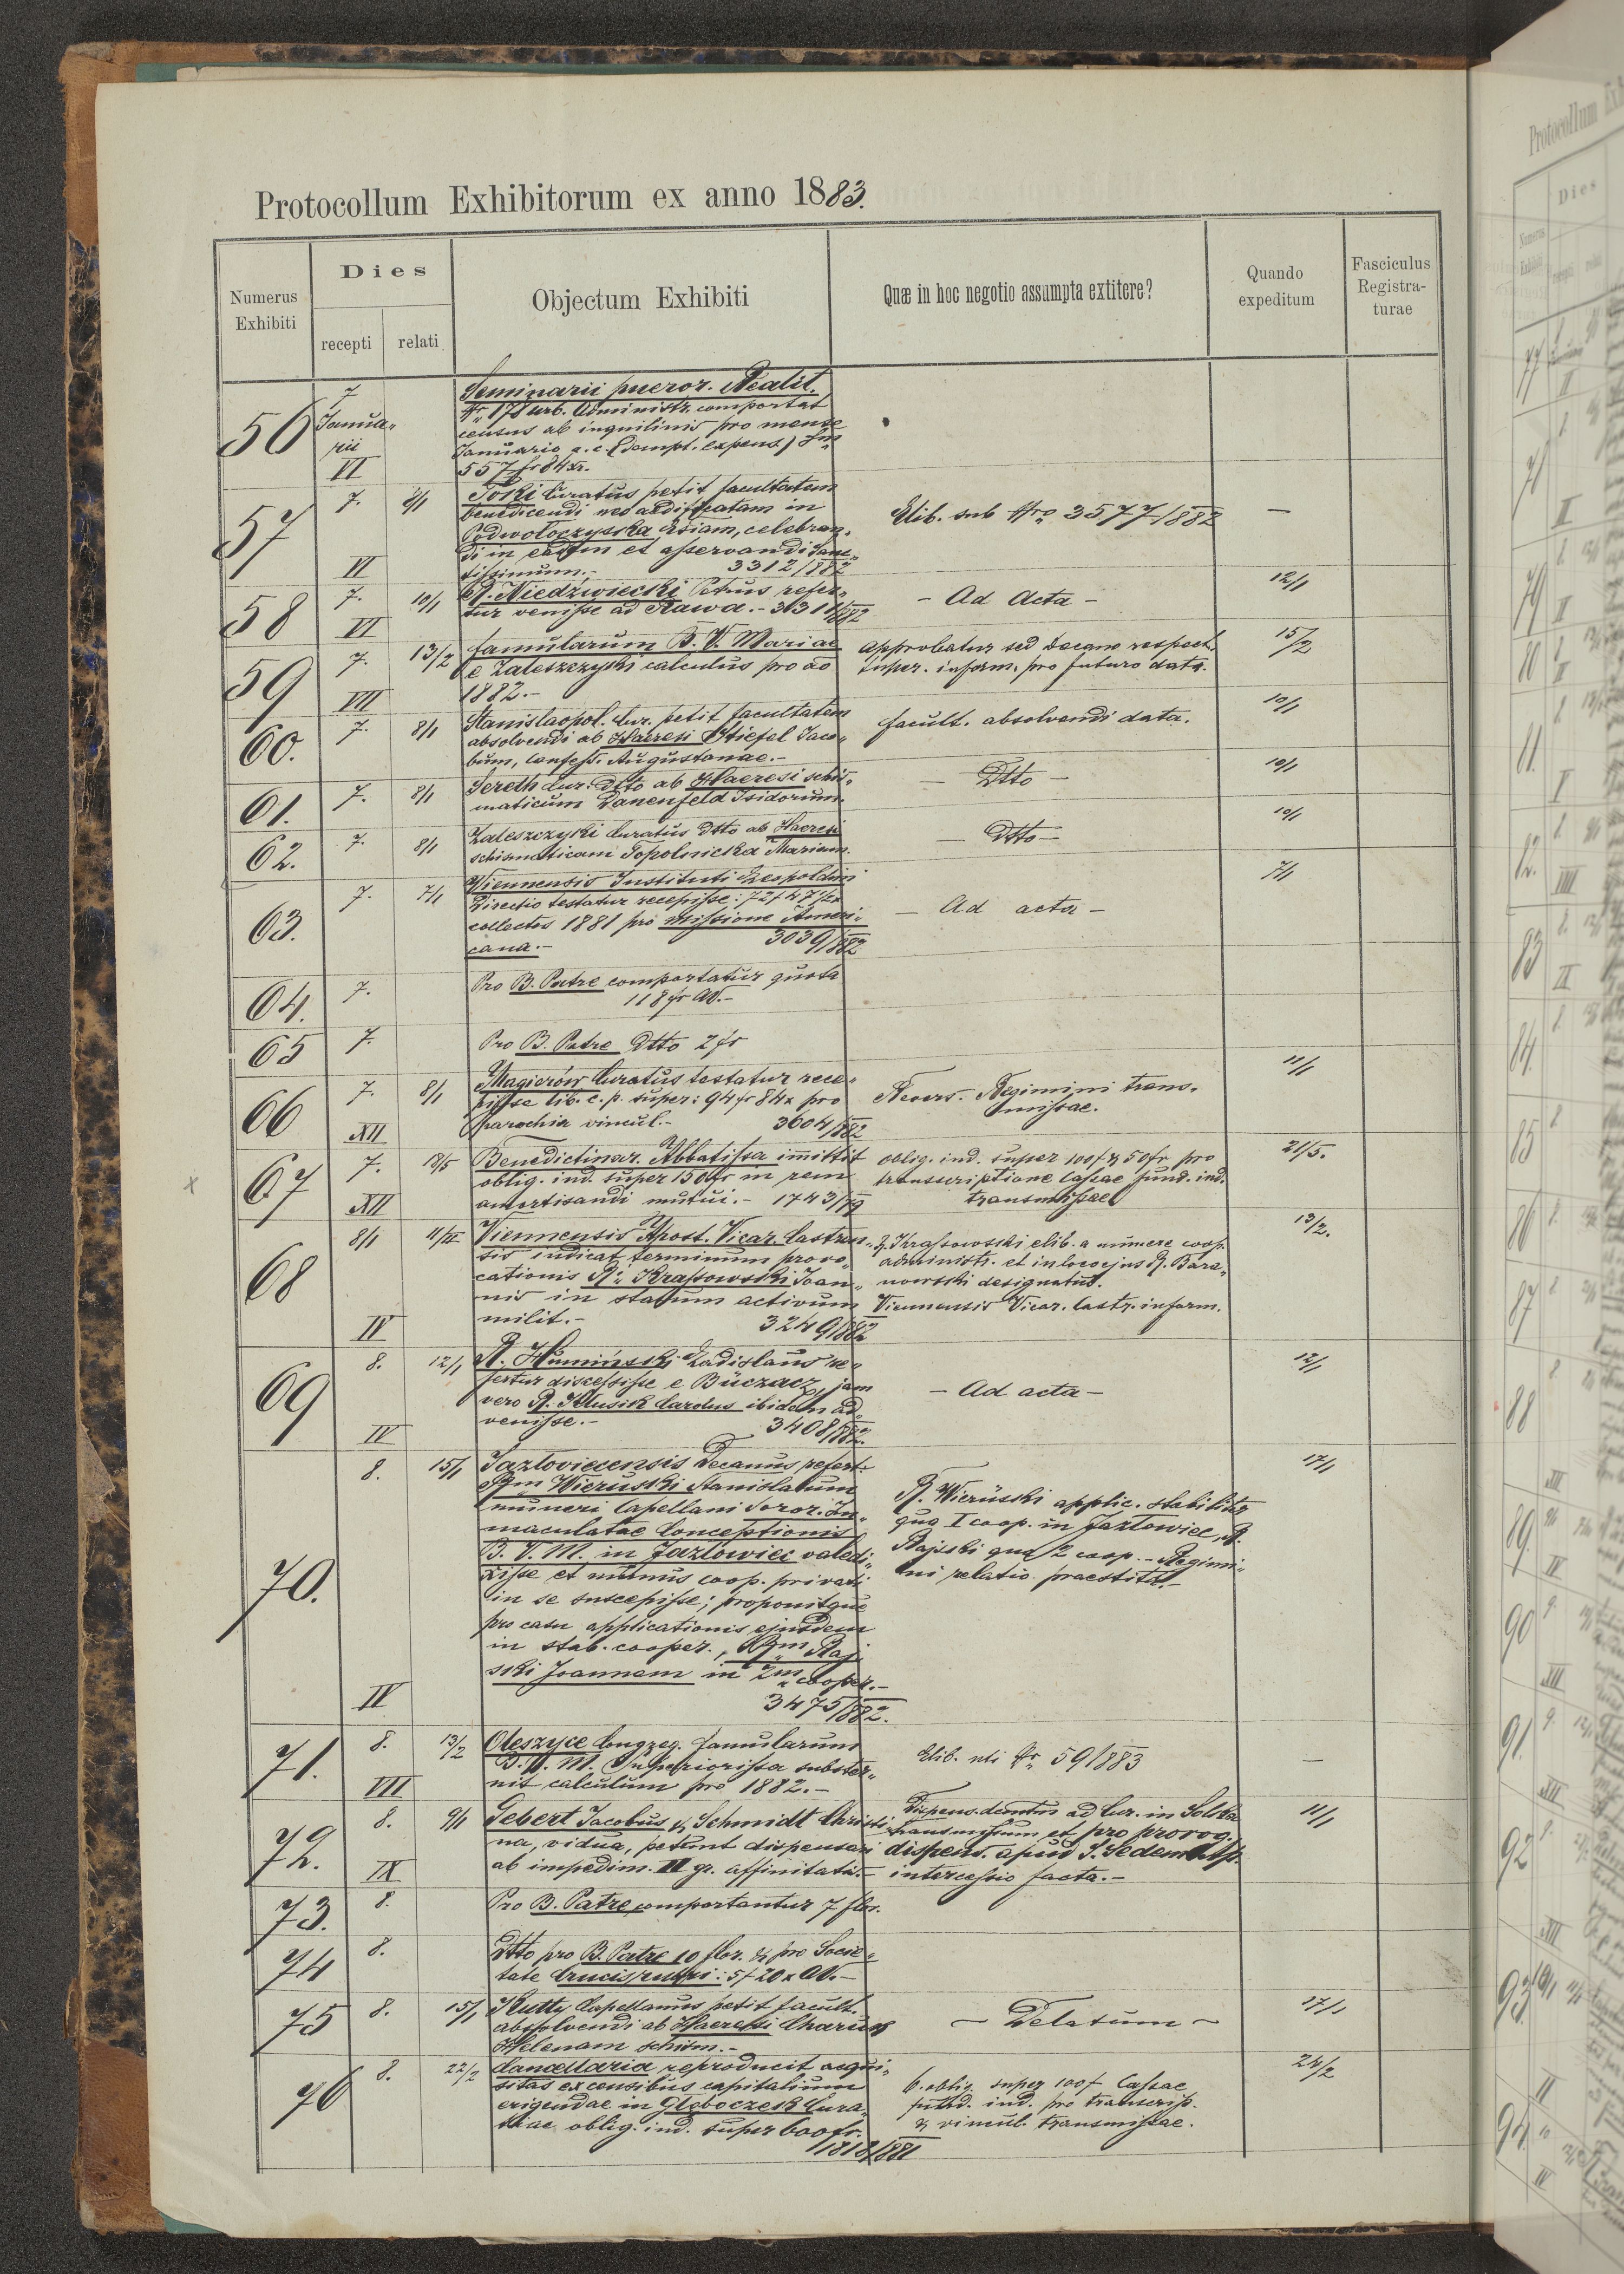 Protocollum Exhibitorum ex anno 1883.
Numerus Exhibiti
Dies
recepti
relati
Objectum Exhibiti
Quæ in hoc negotio assumpta extitere?
Quando expeditum
Fasciculus Registra-turae
56
7
Janua„
rii
VI
Seminarii pueror. Realit.
Nr 178 urb. Administr. comportat
census ab inquilinis pro mense
Januario a. c. (dempt. expens)
557 fr 84 xr.
57
7.
8/1
VI
Toki Curatus petit facultatem
benedicendi neoaedificatam in
Podwołoczyska Ecsiam, celebran„
di in eadem et asservandi Sanc„
tissimum.-
3312/882
Elib. sub Nro 3577/882
—
58
7.
10/1
VI
R. Niedźwiecki Petrus refer„
tur venisse ad Rawa.-
- Ad Acta -
12/1
59
7.
13/2
VII
famularum B. V. Mariae
e Zaleszczyki calculus pro ao
1882.-
approbatur sed Decano respect.
super. inform. pro futuro data.
15/2
60.
7.
8/1
Stanislaopol. Cur. petit facultatem
absolvendi ab Haeresi Stiefel Jaco„
bum, confess. Augustanae.-
facult. absolvendi data.
10/1
61.
7.
8/1
Sereth Cur. Dtto ab Haeresi schis„
maticum Danenfeld Isidorum.
- Dtto -
10/1
62.
7.
8/1
Zaleszczyki Curatus Dtto ab Haeresi
schismaticam Topolnicka Mariam.
- Dtto -
10/1
63.
7.
7/1
Viennensis Instituti Leopoldini
Directio testatur recepisse:
collectos 1881 pro missione Ameri„
cana.-
3039/882
- Ad acta -
7/1
64.
7.
Pro B. Patre comportatur quota
118 fr AV.-
65
7.
Pro B. Patre Dtto 2 fr
66
7.
8/1
XII
Magierów Curatus testatur rece„
pisse lib. c. p. super: 94 fr 84 x pro
parochia vincul.-
3604/882
Revers. Regimini trans„
missae.
11/1
67
7.
18/5
XII
Benedictinar. Abbatissa immittit
oblig. ind. super 150 fr in rem
amortisandi mutui.- 1743/79
oblig. ind. super 100 f & 50 fr pro
transcriptione Cassae fund. ind.
transmissae
21/5.
x
68
8/1
IV
Viennensis Apost. Vicar. Castren„
sis indicat terminum provo„
cationis Ri Krassowski Joan„
nis in statum activum
milit.-
3249/882
R. Krassowski elib. a munere coop.
administr. et in loco ejus R. Bara„
nowski designatus.
Viennensis Vicar. Castr. inform.
13/2.
69
8.
12/1
IV
R. Humiński Ladislaus re„
fertur discessisse e Buczacz, jam
vero R. Klusik Carolus ibidem ad„
venisse.-
3408/882.
- Ad acta -
12/1
70.
8.
15/1
IV
Jazlovicensis Decanus refert
Rm Wieruski Stanislaum
muneri Capellani Soror. Im„
maculatae Conceptionis
B. V. M. in Jazlowiec valedi„
xisse et munus coop. privati
in se suscepisse; proponitque
pro casu applicationis ejusdem
in stab. cooper., Rm Raj
ski Joannem in 2m cooper.-
3475/882.
R. Wieruski applic. stabiliter
qua I coop. in Jazlowiec, R.
Rajski qua 2 coop. - Regimi„
ni relatio praestita.-
17/1
71.
8.
13/2
VII
Oleszyce Congreg. famularum
B. V. M. Superiorissa subster„
nit calculum pro 1882.-
Elib. uti Nr 59/883
—
72.
8.
9/1
IX
Gebert Jacobus & Schmidt Christi
na, vidua, petunt dispensari
ab impedim. II gr. affinitatis.-
Dispens. ad Cur. in Solka
transmissum et pro prorog.
dispens. apud S. Sedem
intercessio facta.-
11/1
73.
8.
Pro B. Patre comportantur 7 flor.
74
8.
Dtto pro B. Patre 10 flor. & pro Socie„
tate Crucis rubri: 5 f 20 x AV.-
75
8.
15/1
Kutty Capellanus petit facult.
absolvendi ab Haeresi Charuk
Helenam schism.-
- Delatum -
17/1
76
8.
22/2
Cancellaria reproducit acqui„
sitas ex censibus capitalium
erigendae in Głęboczek Cura„
tiae oblig. ind. super 600 fr.
1313/881
6. oblig. super 100 f Cassae
fund. ind. pro transcrip.
& vincul. transmissae.
24/2